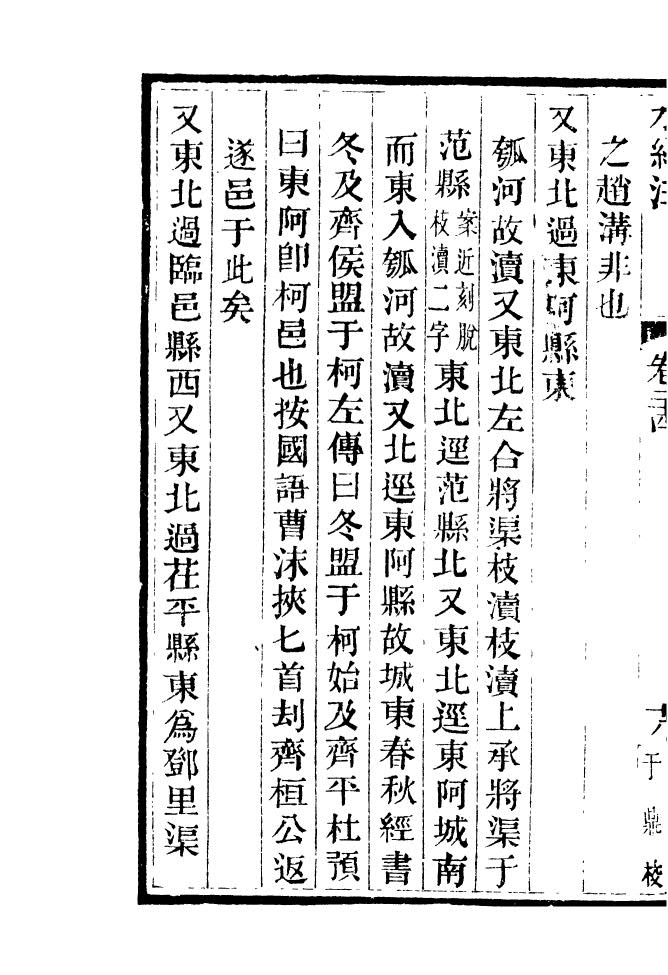 水經注 卷二十四 十八 于鼎校
之趙溝非也
又東北過東阿縣東
瓠河故瀆又東北左合將渠枝瀆枝瀆上承將渠于
范縣案近刻脫枝瀆二字東北逕范縣北又東北逕東阿城南
而東入瓠河故瀆又北逕東阿縣故城東春秋經書
冬及齊侯盟于柯左傳曰冬盟于柯始及齊平杜預
曰東阿卽柯邑也按國語曹沫挾匕首刦齊桓公返
遂邑于此矣
又東北過臨邑縣西又東北過茌平縣東爲鄧里渠